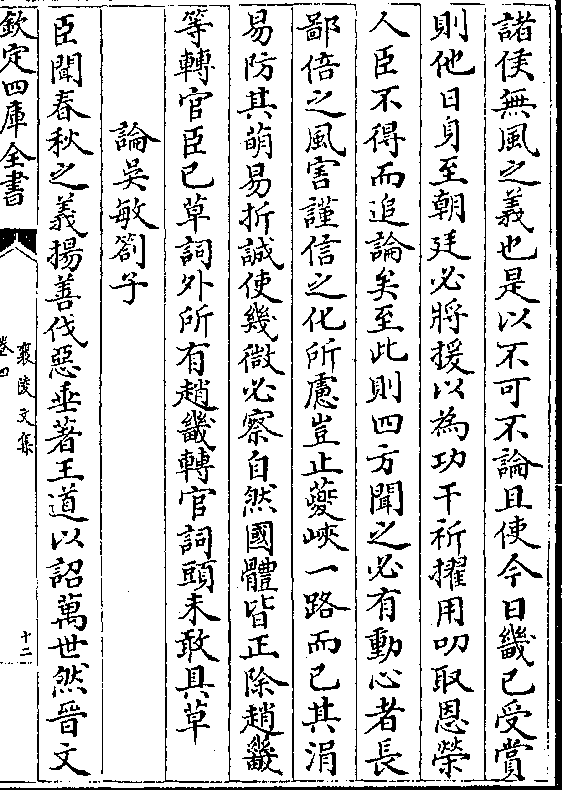 諸侯無風之義也是以不可不論且使今日畿已受賞
則他日身至朝廷必將援以為功干祈擢用叨取恩榮
人臣不得而追論矣至此則四方聞之必有動心者長
鄙倍之風害謹信之化所慮豈止夔峽一路而已其涓
易防其萌易折誠使幾微必察自然國體皆正除趙畿
等轉官臣已草詞外所有趙畿轉官詞頭未敢具草
論吳敏劄子
臣聞春秋之義揚善伐惡垂著王道以詔萬世然晉文
欽定四庫全書
襄陵文集
卷四
十二